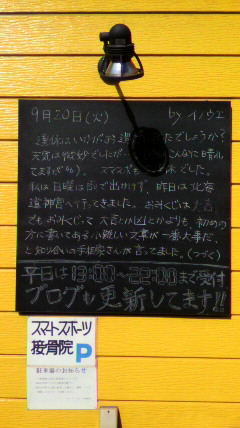 9月20日(火) by イノウエ
連休はいかがお過 たでしょうか?
天気は微妙でしたが こんなに晴れ
てますが スマスポも 休でした。
私は日曜は 出かけず、昨日は北海
道神宮へ行ってきました。おみくじは
でもおみくじって大吉とか凶とかよりも、初めの
方に書いてある小難しい文章が一番大事だ
と知り合いの手相家さんが言ってました。(つづく)
平日は13:00〜22:00まで受付
ブログも更新してます!!
スマートスポーツ
接骨院 P
駐車場のお知らせ